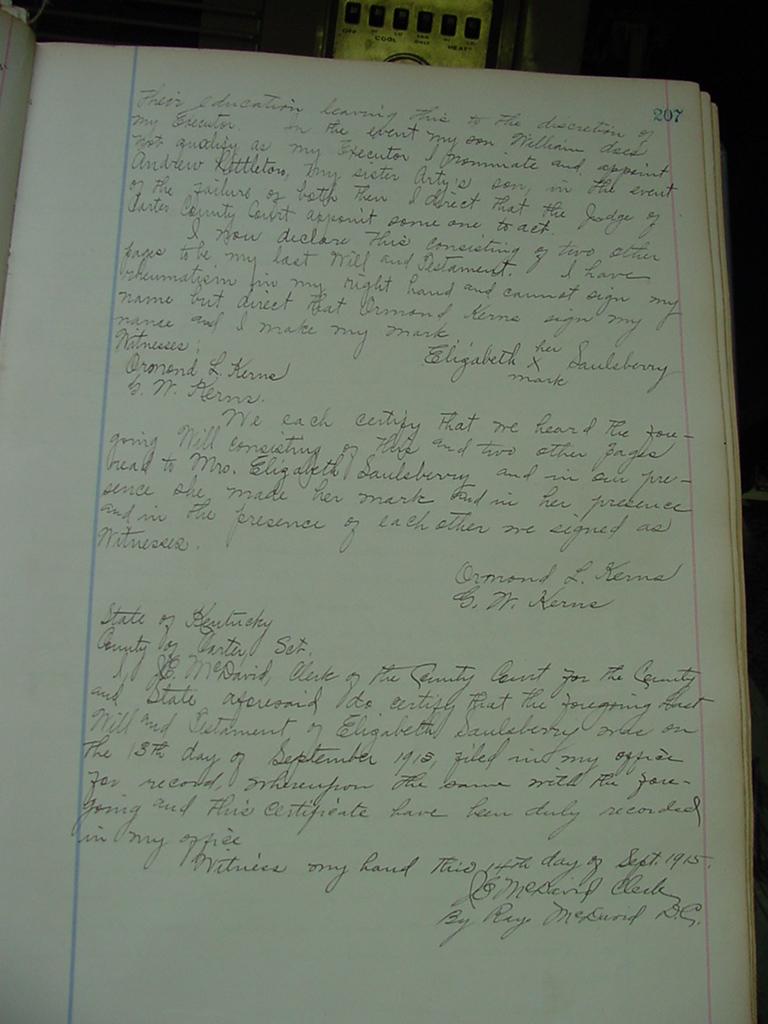 OFF HI LO FAN ONLY HI LO
COOL HEAT
207
Their education leaving this to the discretion of
my Executor. In the event my son William does
not qualify as my Executor I nominate and appoint
Andrew Kettleton, my sister Arty's son, in the event
of the failure of both then I direct that the Judge of
Carter County Court appoint some one to act.
I now declare this consisting of two other
pages to be my last Will and Testament. I have
rheumatism in my right hand and cannot sign my
name but direct that Ormond Kerns sign my
name and I make my mark
Witnesses;
her
Elizabeth X Saulsberry
mark
Ormond L. Kerns
G. W. Kerns.
We each certify that we heard the fore-
going Will consisting of this and two other pages
read to Mrs. Elizabeth Saulsberry and in our pre-
sence she made her mark and in her presence
and in the presence of each other we signed as
Witnesses.
Ormond L. Kerns
G. W. Kerns
State of Kentucky
County of Carter, Sct.
I, J.E. McDavid, Clerk of the County Court for the County
and State aforesaid do certify that the foregoing Last
Will and Testament of Elizabeth Saulsberry was on
the 13th day of September 1915, filed in my office
for record, whereupon the same with the fore-
going and this certificate have been duly recorded
in my office
Witness my hand this 14th day of Sept. 1915.
J E McDavid Clerk
By Ray McDavid D.C.